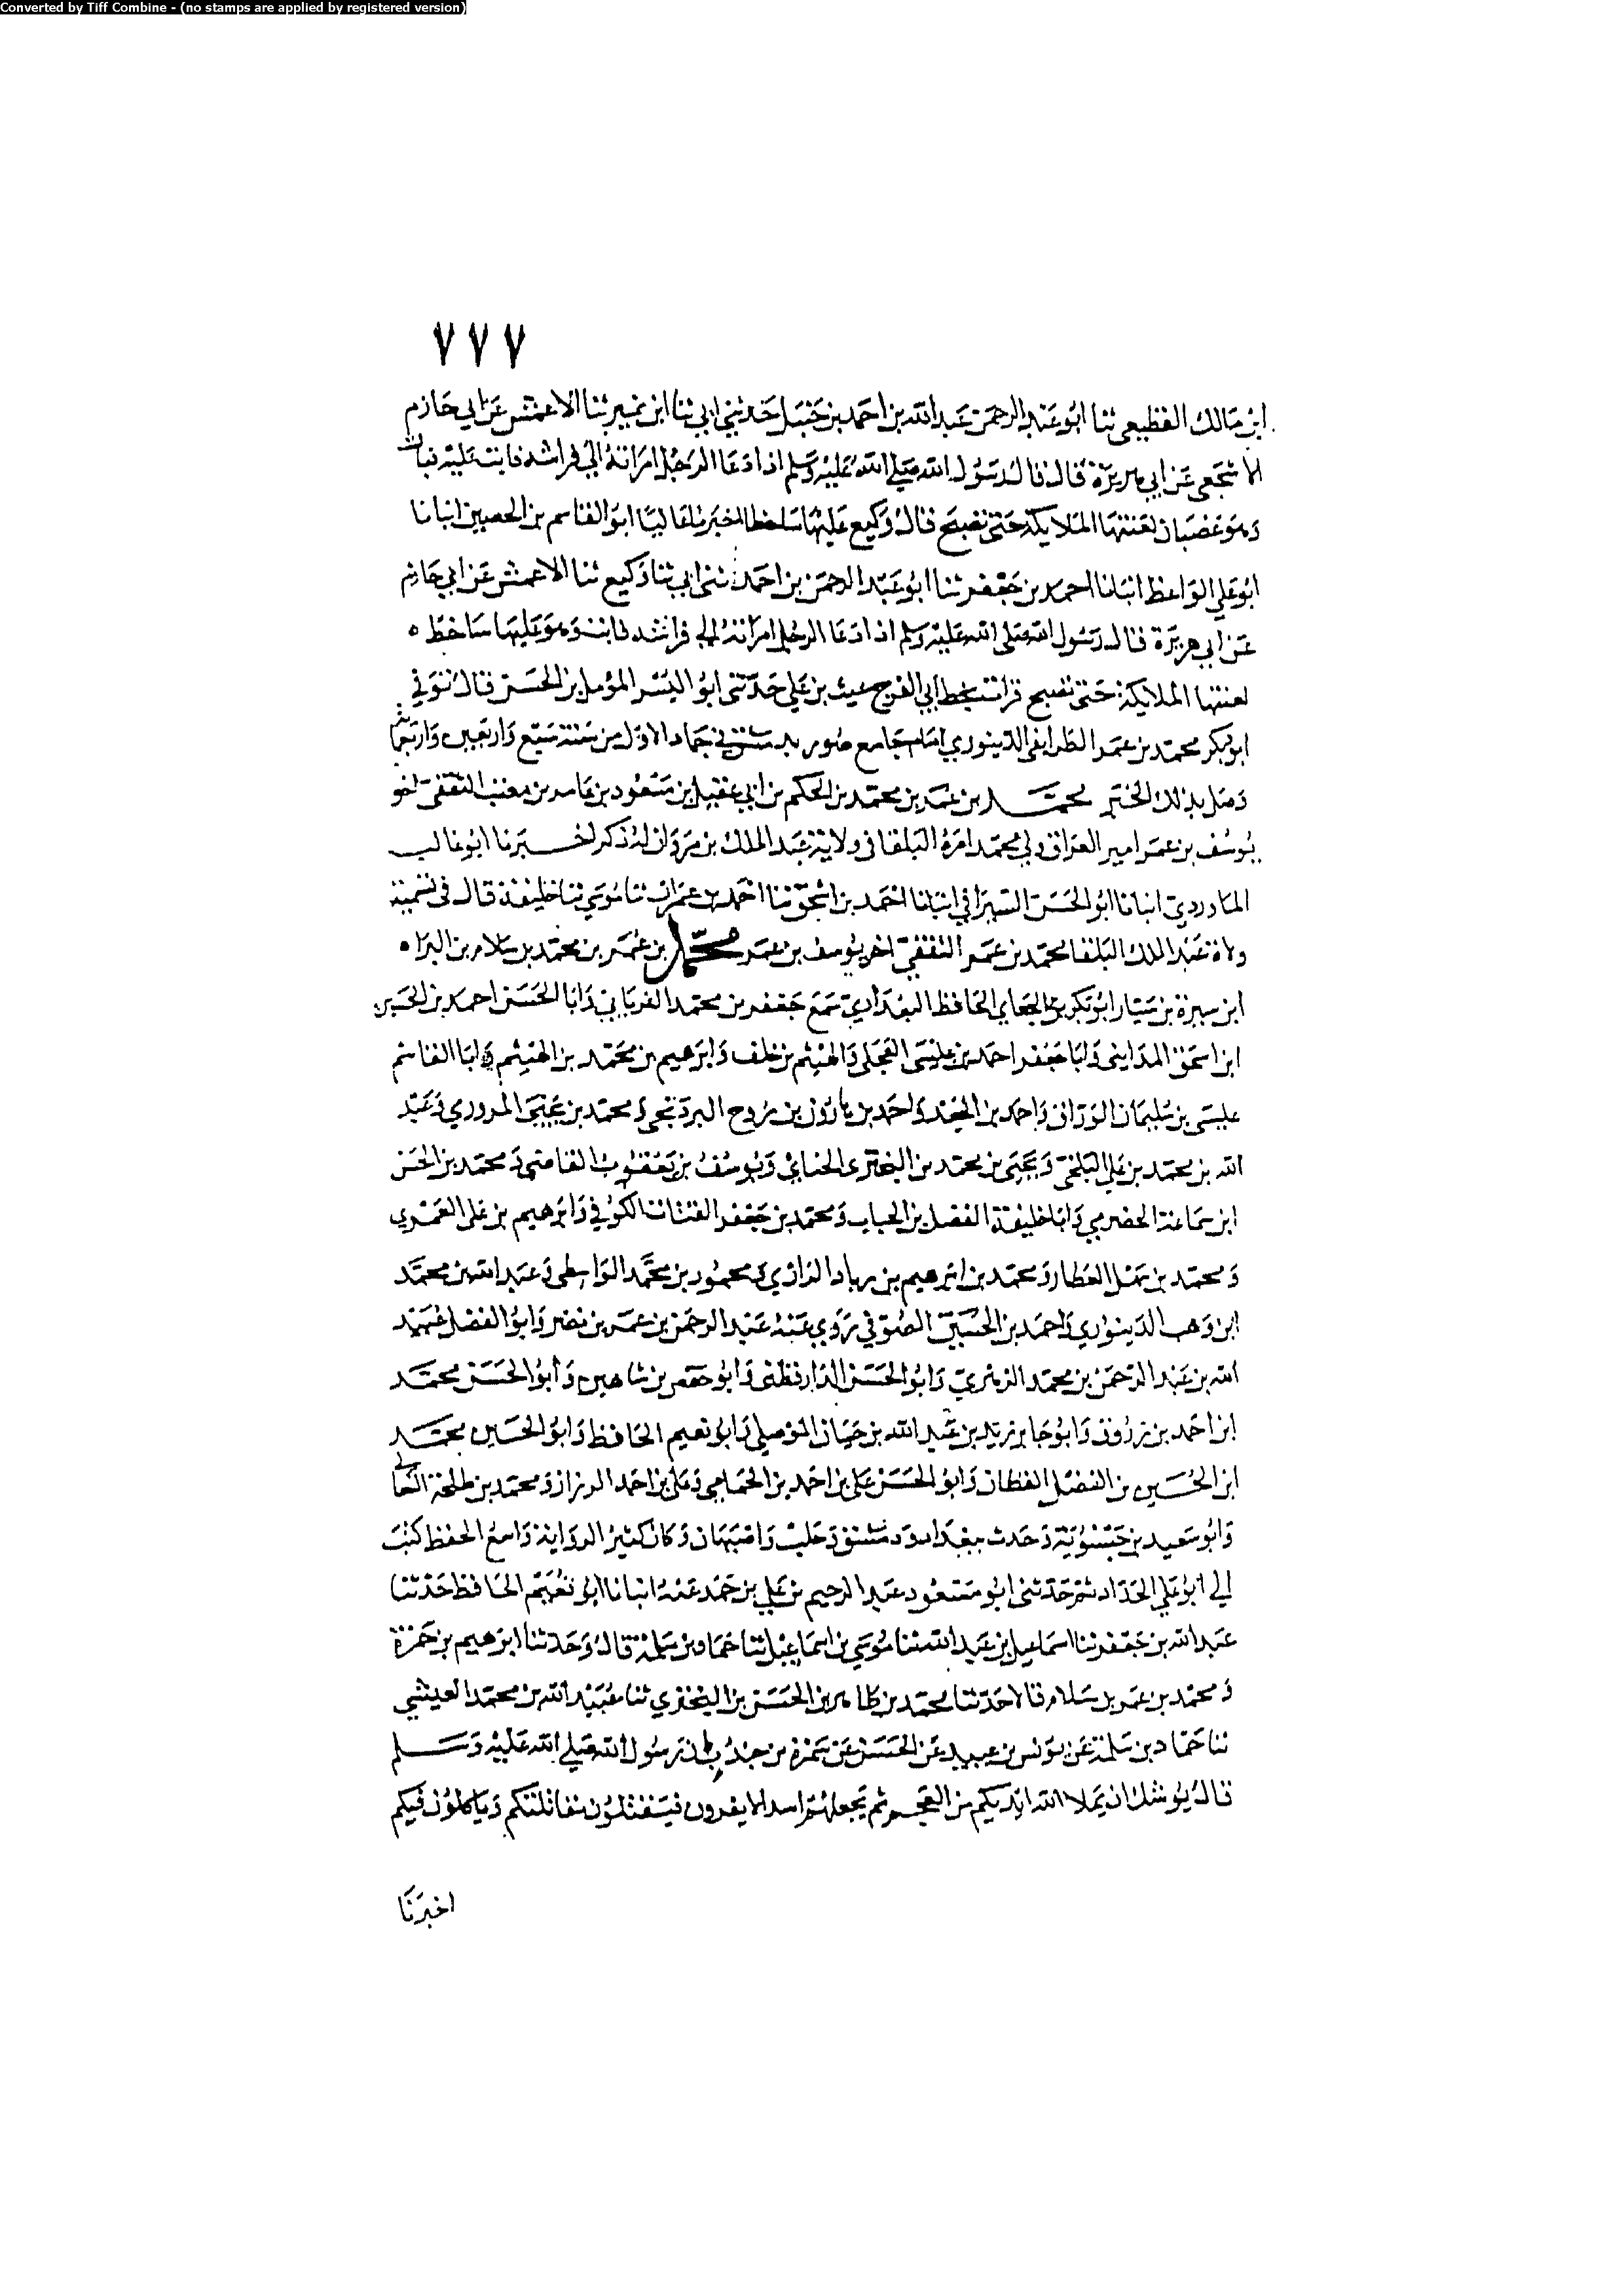 Converted by Tiff Combine - (no stamps are applied by registered version)
٧٧٧
ابن مالك القطيعي ثنا ابو عبد الرحمن عبد الله بن احمد بن حنبل حدثني ابي ثنا ابن نمير ثنا الاعمش عن ابي حازم
الاشجعي عن ابي هريرة قال قال رسول الله صلى الله عليه وسلم اذا دعا الرجل امراته الى فراشه فابت عليه فبات
وهو غضبان لعنتها الملايكة حتى تصبح قال وكيع عليها ساخط اخبرنا عاليا ابو القاسم بن الحصين انبانا
ابو علي الواعظ انبانا احمد بن جعفر ثنا ابو عبد الرحمن بن احمد ثنى ابي ثنا وكيع ثنا الاعمش عن ابي حازم
عن ابي هريرة قال رسول الله صلى الله عليه وسلم اذا دعا الرجل امراته الى فراشه فابت وهو عليها ساخط ه
لعنتها الملايكة حتى تصبح قرات بخط ابي الفرج غيث بن علي حدثني ابو اليسر المؤمل بن الحسن قال توفي
ابو بكر محمد بن عمر الطرايفي الدينوري امام جامع صور بدمشق في جماد الاول من سنة سبع واربعين واربعمائة
وصل بذلك الخبر محمد بن عمر بن محمد بن الحكم بن ابي عقيل بن مسعود بن عامر بن معتب الثقفي اخو
يوسف بن عمر امير العراق ولي محمد امرة البلقا في ولاية عبد الملك بن مروان له ذكر اخبرنا ابو غالب
الماوردي انبانا ابو الحسن السيرافي انبانا احمد بن اسحق ثنا احمد بن عمران ثنا موسى ثنا خليفة قال في تسمية
ولاة عبد الملك البلقا محمد بن عمر الثقفي اخو يوسف بن عمر محمد بن عمر بن محمد بن سلام بن البرا ه
ابن سبرة بن سيار ابو بكر بن الجعابي الحافظ البغدادي سمع جعفر بن محمد الفريابي وابا الحسن احمد بن الحسين
ابن اسحق المدايني وابا جعفر احمد بن عيسى العجلي والهيثم بن خلف وابرهيم بن محمد بن الهيثم وابا القاسم
عيسى بن سليمان الوراق واحمد بن الجعد واحمد بن هارون بن روح البرديجي ومحمد بن يحيى المروزي وعبد
الله بن محمد بن علي البلخي ويحيى بن محمد بن البختري الحنايي ويوسف بن يعقوب القاضي ومحمد بن الحسن
ابن سماعة الحضرمي وابا خليفة الفضل بن الحباب ومحمد بن جعفر القتات الكوفي وابرهيم بن علي العمري
ومحمد بن سهل العطار ومحمد بن ابرهيم بن زياد الرازي ومحمود بن محمد الواسطي وعبد الله بن محمد
ابن وهب الدينوري واحمد بن الحسين الصوفي روى عنه عبد الرحمن بن عمر بن نصر وابو الفضل عبيد
الله بن عبد الرحمن بن محمد الزهري وابو الحسن الدارقطني وابو حفص بن شاهين وابو الحسن محمد
ابن احمد بن رزوق وابو جابر زيد بن عبد الله بن حيان الموصلي وابو نعيم الحافظ وابو الحسين محمد
ابن الحسين بن الفضل القطان وابو الحسن علي بن احمد بن الحمامي وعلي بن احمد الرزاز ومحمد بن طلحة النعالي
وابو سعيد بن حسنويه وحدث ببغداد ودمشق وحلب واصبهان وكان كثير الرواية واسع الحفظ كتب
الي ابو علي الحداد ثم حدثني ابو مسعود عبد الرحيم بن علي بن حمد عنه انبانا ابو نعيم الحافظ حدثنا
عبد الله بن جعفر ثنا اسماعيل بن عبد الله ثنا موسى بن اسماعيل ثنا حماد بن سلمة قال وحدثنا ابرهيم بن حمزة
ومحمد بن عمر بن سلام قالا حدثنا محمد بن طاهر بن الحسن بن البختري ثنا عبيد الله بن محمد العيشي
ثنا حماد بن سلمة عن يونس بن عبيد عن الحسن عن سمرة بن جندب ان رسول الله صلى الله عليه وسلم
قال يوشك ان يملا الله ايديكم من العجم ثم يجعلهم اسدا لا يفرون فيقتلون مقاتلتكم وياكلون فيكم
اخبرنا